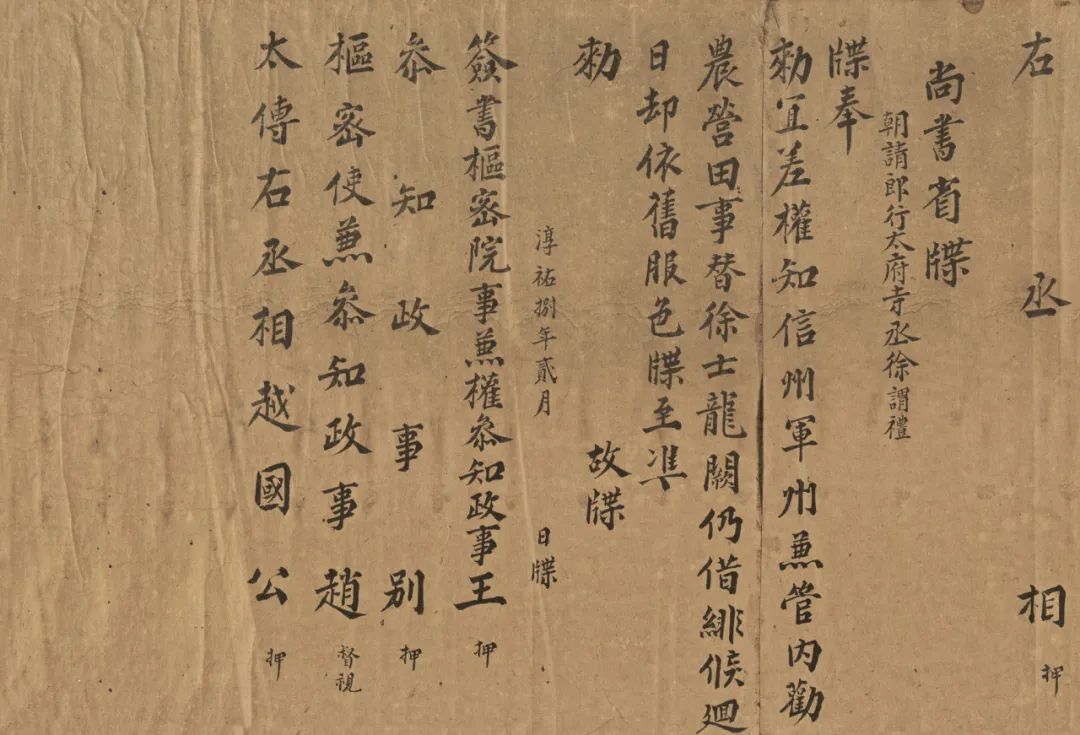 右丞相押
尚書省牒
朝請郎行太府寺丞徐謂禮
牒奉
勑宜差權知信州軍州兼管內勸
農營田事替徐士龍闕仍借緋候迴
日却依舊服色牒至准
勑故牒
淳祐捌年貳月日牒
簽書樞密院事兼權叅知政事王押
叅知政事别押
樞密使兼叅知政事趙督視
太傅右丞相越國公押